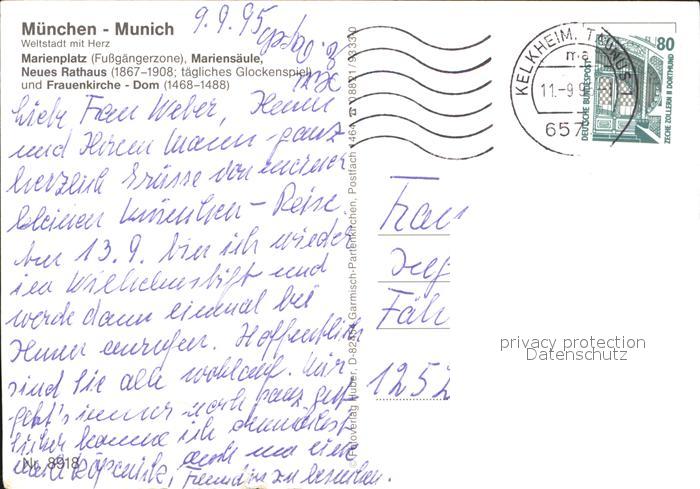 München - Munich
Weltstadt mit Herz
Marienplatz (Fußgängerzone), Mariensäule,
Neues Rathaus (1867–1908; tägliches Glockenspiel)
und Frauenkirche - Dom (1468–1488)
9.9.95
Liebe Frau Weber, Ihnen
und Ihrem Mann ganz
herzlich Grüsse von meiner
kleinen München-Reise.
Am 13.9. bin ich wieder
im Wilhelmstift und
werde dann einmal bei
Ihnen anrufen. Hoffentlich
sind Sie alle wohlauf. Mir
geht's immer noch ganz gut
Sicher komme ich demnächst
nach Köpenik, auch um eine
Freundin zu besuchen.
Nr. 8918
Fotoverlag Huber, D-82454 Garmisch-Partenkirchen, Postfach 1464 ☎ 08821/93330
KELKHEIM, TAUNUS
m-a
11.-9.9
657
80
DEUTSCHE BUNDESPOST
ZECHE ZOLLERN II DORTMUND
Frau
Fäh
1252
privacy protection
Datenschutz